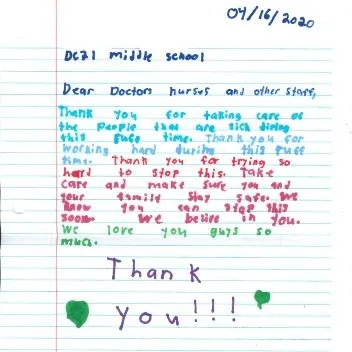 04/16/2020
DC21 middle school
Dear Doctors nurses and other staff,
Thank you for taking care of
the people that are sick diring
this tuff time. Thank you for
working hard during this tuff
time. Thank you for trying so
hard to stop this. Take
care and make sure you and
your family stay safe. We
know you can stop this
soon. We belive in you.
We love you guys so
much.
Thank
you!!!